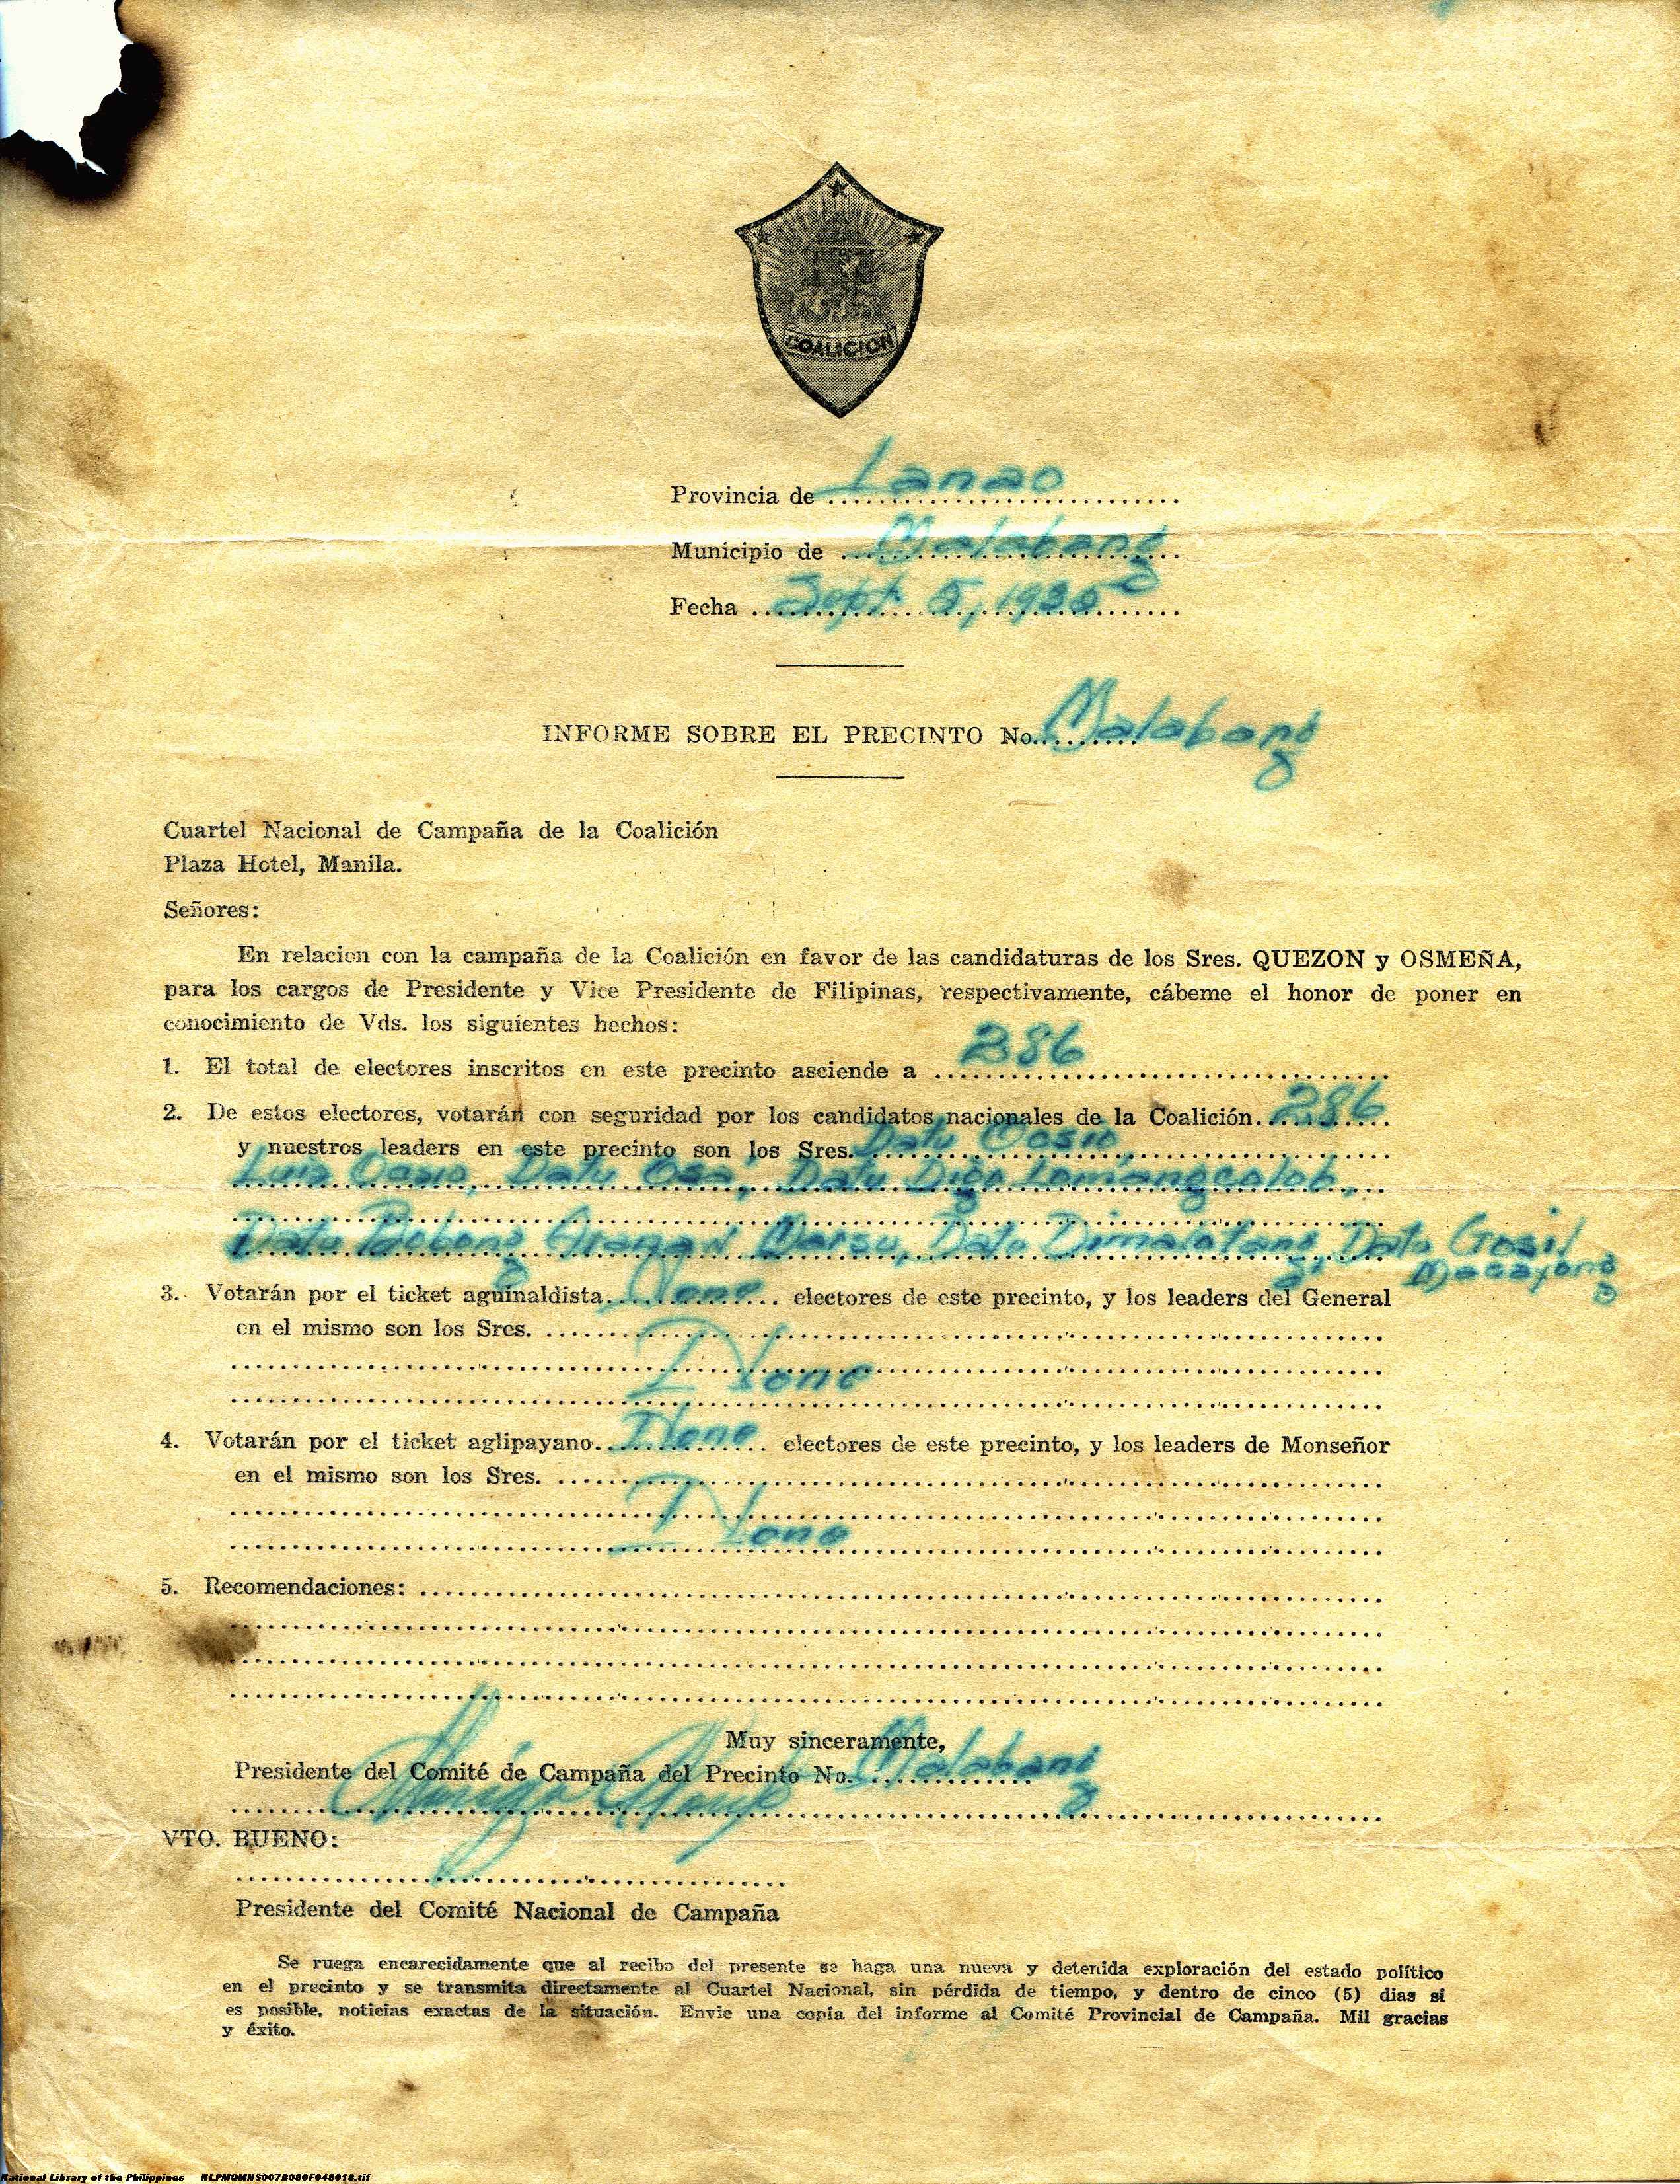 COALICION
Provincia de Lanao
Municipio de Malabang
Fecha Sept. 5, 1935
INFORME SOBRE EL PRECINTO No. Malabang
Cuartel Nacional de Campaña de la Coalición
Plaza Hotel, Manila.
Señores:
En relacion con la campaña de la Coalición en favor de las candidaturas de los Sres. QUEZON y OSMEÑA,
para los cargos de Presidente y Vice Presidente de Filipinas, respectivamente, cábeme el honor de poner en
conocimiento de Vds. los siguientes hechos:
1. El total de electores inscritos en este precinto asciende a 286
2. De estos electores, votarán con seguridad por los candidatos nacionales de la Coalición. 286
y nuestros leaders en este precinto son los Sres. Datu Ocsio,
Luis Ocsio, Datu Datu Digo Lomangcolob,
Datu Bobong Datu Dimalotang, Dato Gosil
Macayong
3. Votarán por el ticket aguinaldista None electores de este precinto, y los leaders del General
en el mismo son los Sres.
None
4. Votarán por el ticket aglipayano None electores de este precinto, y los leaders de Monseñor
en el mismo son los Sres.
None
5. Recomendaciones:
Muy sinceramente,
Presidente del Comité de Campaña del Precinto No. Malabang
VTO. BUENO:
Presidente del Comité Nacional de Campaña
Se ruega encarecidamente que al recibo del presente se haga una nueva y detenida exploración del estado político
en el precinto y se transmita directamente al Cuartel Nacional, sin pérdida de tiempo, y dentro de cinco (5) dias si
es posible, noticias exactas de la situación. Envie una copia del informe al Comité Provincial de Campaña. Mil gracias
y éxito.
National Library of the Philippines NLPMQMNS007B080F048018.tif